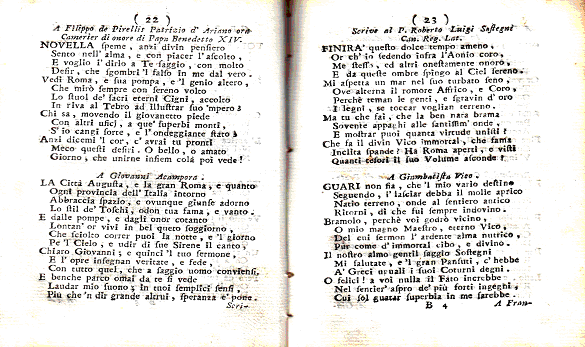 ( 22 )
A Filippo de Pirellis Patrizio d' Ariano ora
Camerier di onore di Papa Benedetto XIV.
NOVELLA speme, anzi divin pensiero
Sento nell' alma, e con piacer l' ascolto,
E voglio i' dirlo a Te saggio, con molto
Desir, che sgombri 'l falso in me dal vero.
Vedi Roma, e sua pompa, e 'l genio altero,
Che mirò sempre con sereno volto
Lo stuol de' sacri eterni Cigni, accolto
In riva al Tebro ad illustrar suo 'mpero?
Chi sa, movendo il giovanetto piede
Con altri usici, a que' superbi monti,
S' io cangi sorte, e l' ondeggiante stato?
Anzi dicemi 'l cor, e' avrai tu pronti
Meco questi desiri. O bello, o amato
Giorno, che unirne insiem colà poi vede!
A Giovanni Acampora.
LA Città Augusta, e la gran Roma, e quanto
Ogni provincia dell' Italia intorno
Abbraccia spazio, e ovunque giunse adorno
Lo stil de' Toschi, odon tua fama, e vanto.
E dalle pompe, e dagli onor cotanto
Lontan' or vivi in bel queto soggiorno,
Che sciolto correr puoi la notte, e 'l giorno
Pe 'l Cielo, e udir di sue Sirene il canto,
Chiaro Giovanni; e quinci 'l tuo fermone,
E l' opre insegnan veritate, e fede,
Con tutto quel, che a saggio uomo conviensi,
E benche parco omai da te si vede
Laudar mio suono; in tuoi semplici sensi,
Più che 'n dir grande altrui, speranza e' pone.
Scri-
( 23 )
Scrive al P. Roberto Luigi Sostegni
Can. Reg. Lat.
FINIRA' questo dolce tempo ameno,
Or ch' io sedendo infra l' Aonio coro,
Me stesso, ed altri onestamente onoro,
E da queste ombre spingo al Ciel sereno.
Mi aspetta un mar nel suo turbato seno,
Ove alterna il romore Affrico, e Coro,
Perchè teman le genci, e sgravin d' oro
I legni, se toccar vogliam terreno.
Ma tu che fai, che la ben nara brama
Sovente appaghi alle santissim' onde,
E mostrar puoi quanta virtude unisti?
Che fa il divin Vico immortal, che fama
Inclita spande? Ha Roma aperti, e visti
Quanti tesori il suo Volume asconde?
A Giambatista Vico.
GUARI non fia, che 'l mio vario destino
Seguendo, i' lasciar debba il molle aprico
Natio terreno, onde al sentiero antico
Ritorni, di che fui sempre indovino.
Bramolo, perchè voi godo vicino,
O mio magno Maestro, eterno Vico,
Del cui sermon l' ardente alma nutrico,
Pur come d' immortal cibo, e divino.
Il nostro almo gentil saggio Sostegni
Mi salutate, e 'l gran Pansuti, c' hebbe
A' Greci uguali i suoi Coturni degni.
O felici! a voi nulla il Fato increbbe
Nel sentier' aspro de' più forti ingegni,
Cui sol guatar superbia in me sarebbe.
B 4
A Fran-